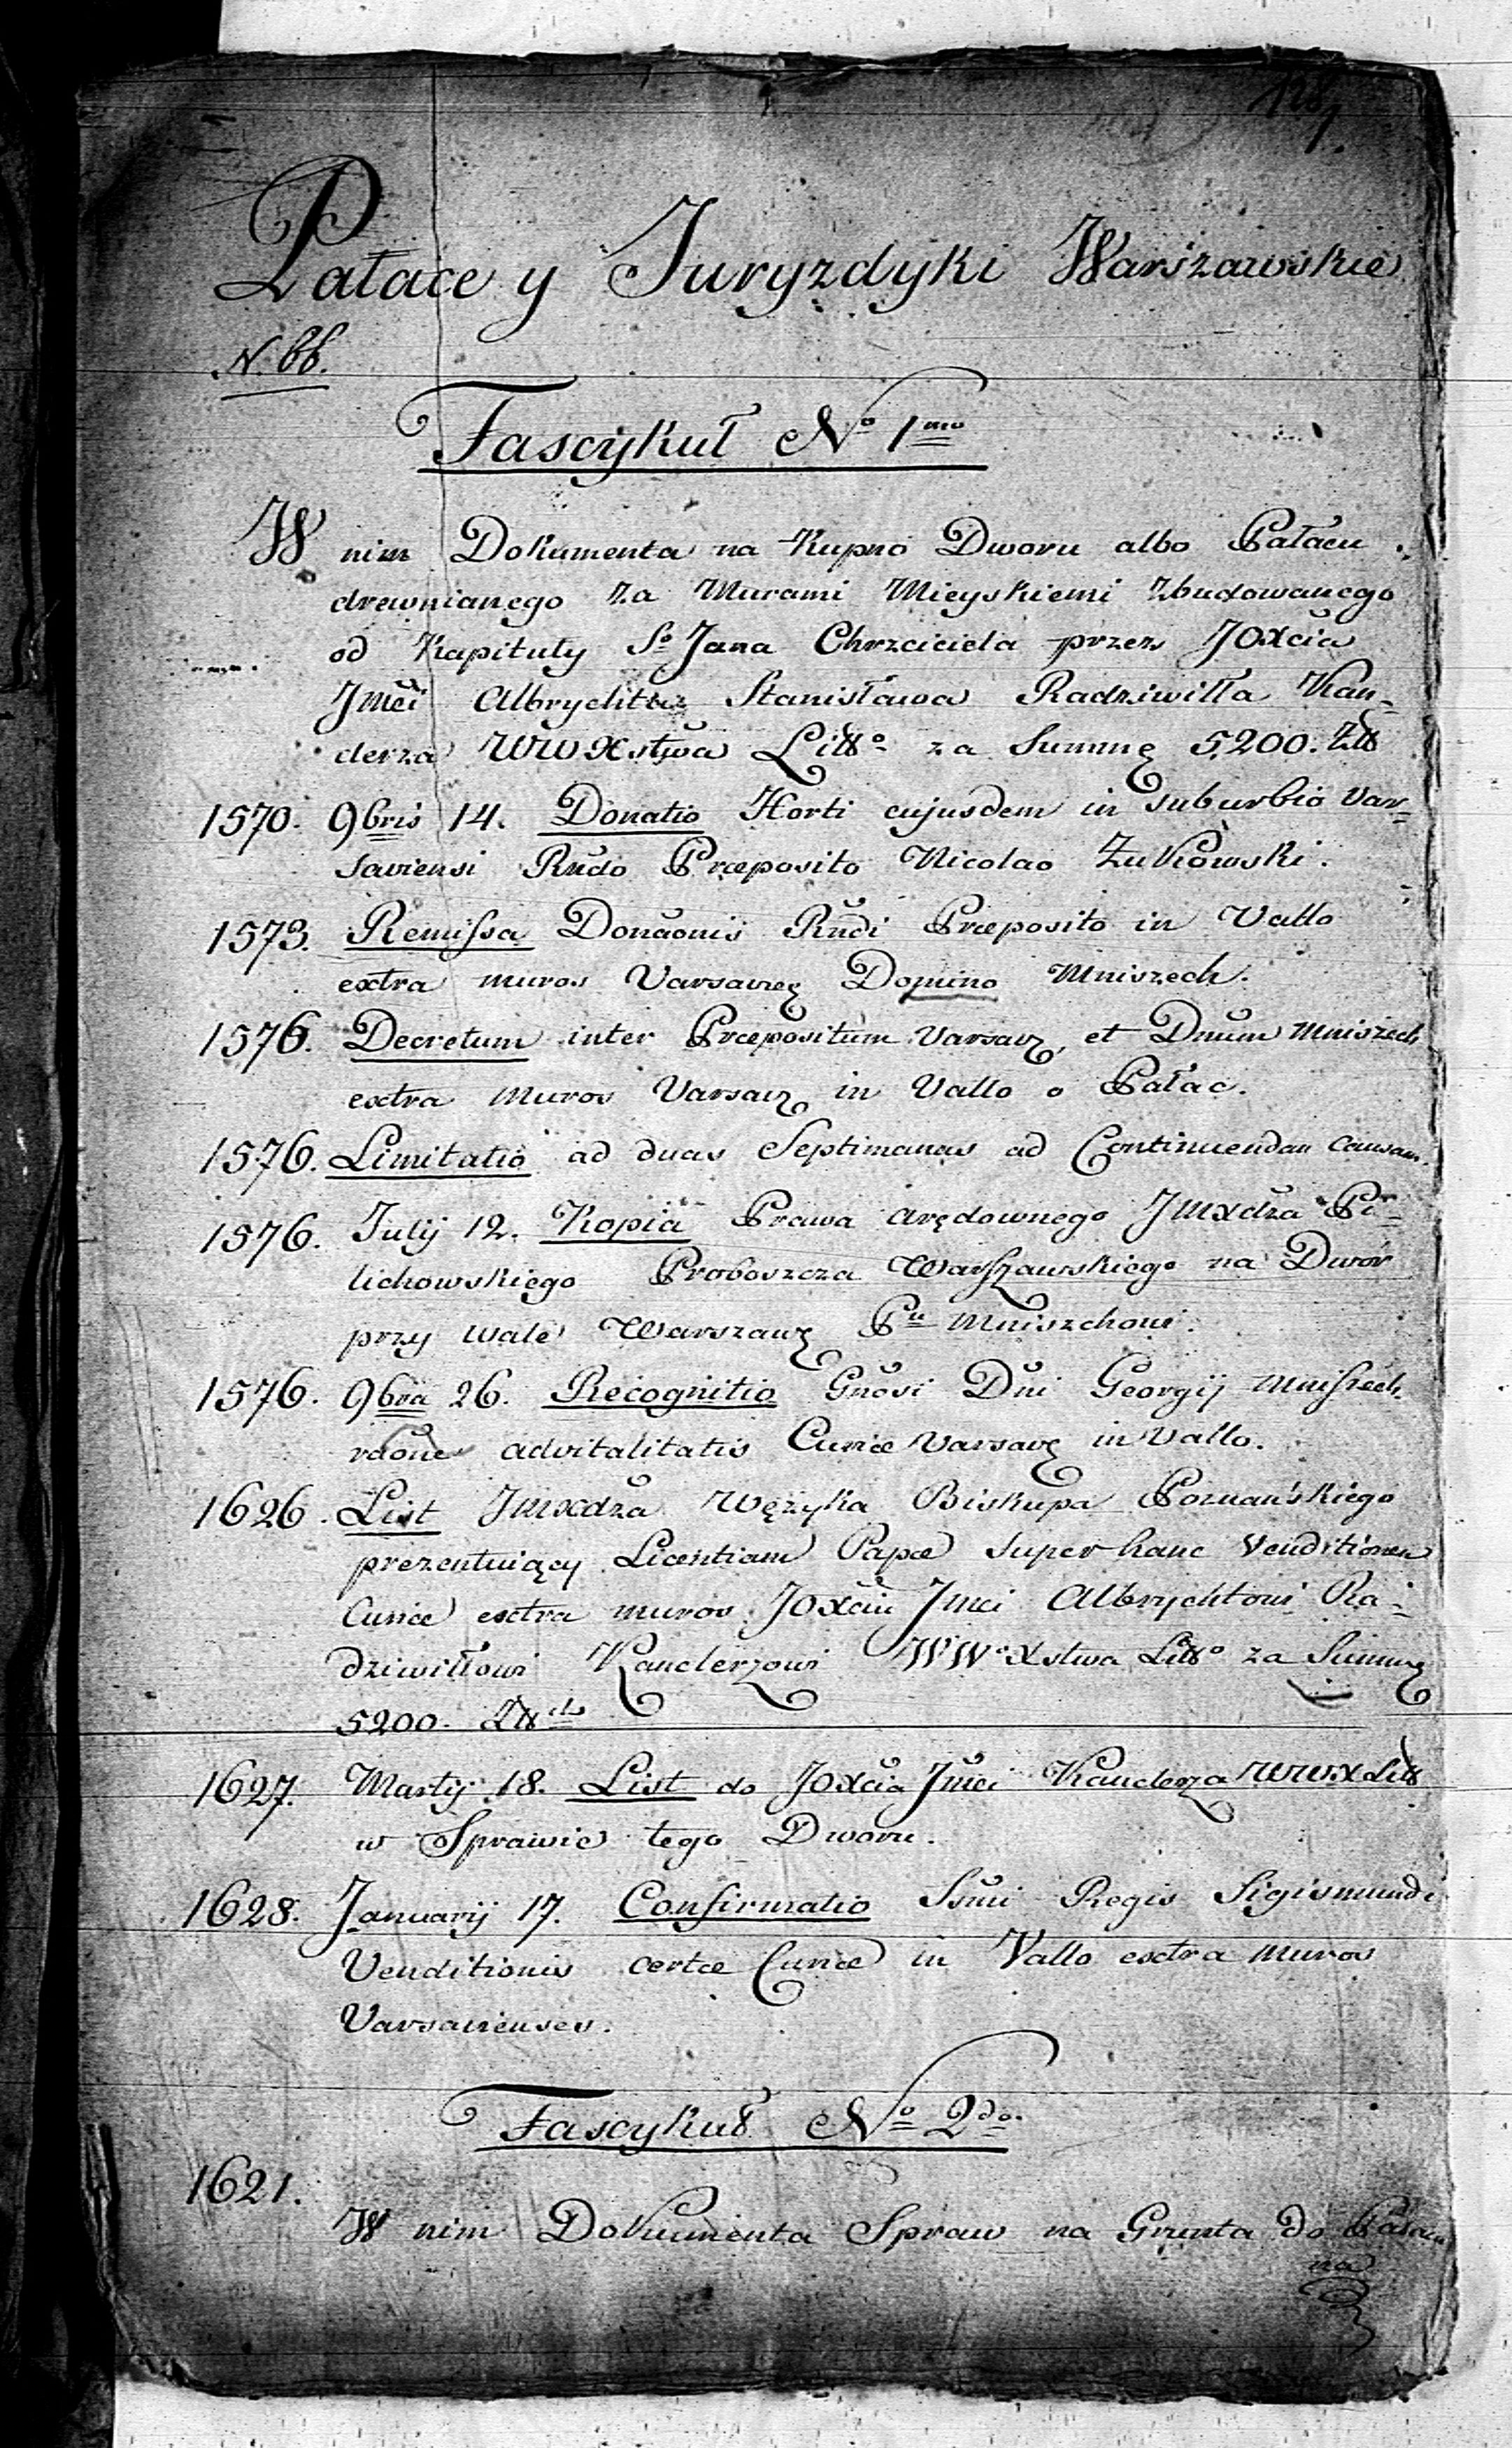 128
Pałace y Juryzdyki Warszawskie
N. 66.
Fascykuł No 1mo
W nim Dokumenta na Kupno Dworu albo Pałacu
drewnianego za Murami Mieyskiemi zbudowanego
od Kapituły So Jana Chrzciciela przez JOXcia
Jmci Albrychta Stanisława Radziwiłła Kan=
clerza WWXstwa Litto za Summę 5200. Złł
1570. 9bris 14. Donatio Horti cujusdem in suburbio Var=
saviensi Rndo Præposito Nicolao Żukowski.
1573. Remissa Donaonis Rndi Præposito in Vallo
extra muros Varsaviæ Domino Mniszech.
1576. Decretum inter Præpositum Varsav, et Dnum Mniszech
extra Muros Varsav, in Vallo o Pałac.
1576. Limitatio ad duas Septimanas ad Continuendam causam.
1576. Julij 12. Kopia Prawa arędownego JmXdza Pi=
lichowskiego Proboszcza Warszawskiego na Dwór
przy wale Warszawę Pu Mniszchowi.
1576. 9bra 26. Recognitio Gnosi Dni Georgij Mniszech
raone advitalitatis Curiæ Varsavę in Vallo.
1626. List JmXdza Wężyka Biskupa Poznańskiego
prezentuiący Licentiam Papæ super hanc Venditionem
Curiæ extra muros JOXciu Jmci Albrychtowi Ra=
dziwiłłowi Kanclerzowi WWoXstwa Litto za Summę
5200. Złłch
1627. Martij 18. List do JOXcia Jmci Kanclerza WWXLitt
w Sprawie tego Dworu.
1628. Januarij 17. Confirmatio Ssmi Regis Sigismundi
Venditionis certæ Curiæ in Vallo extra muros
Varsavienses.
Fascykuł No 2do.
1621.
W nim Dokumenta Spraw na Grunta do Pałacu
na